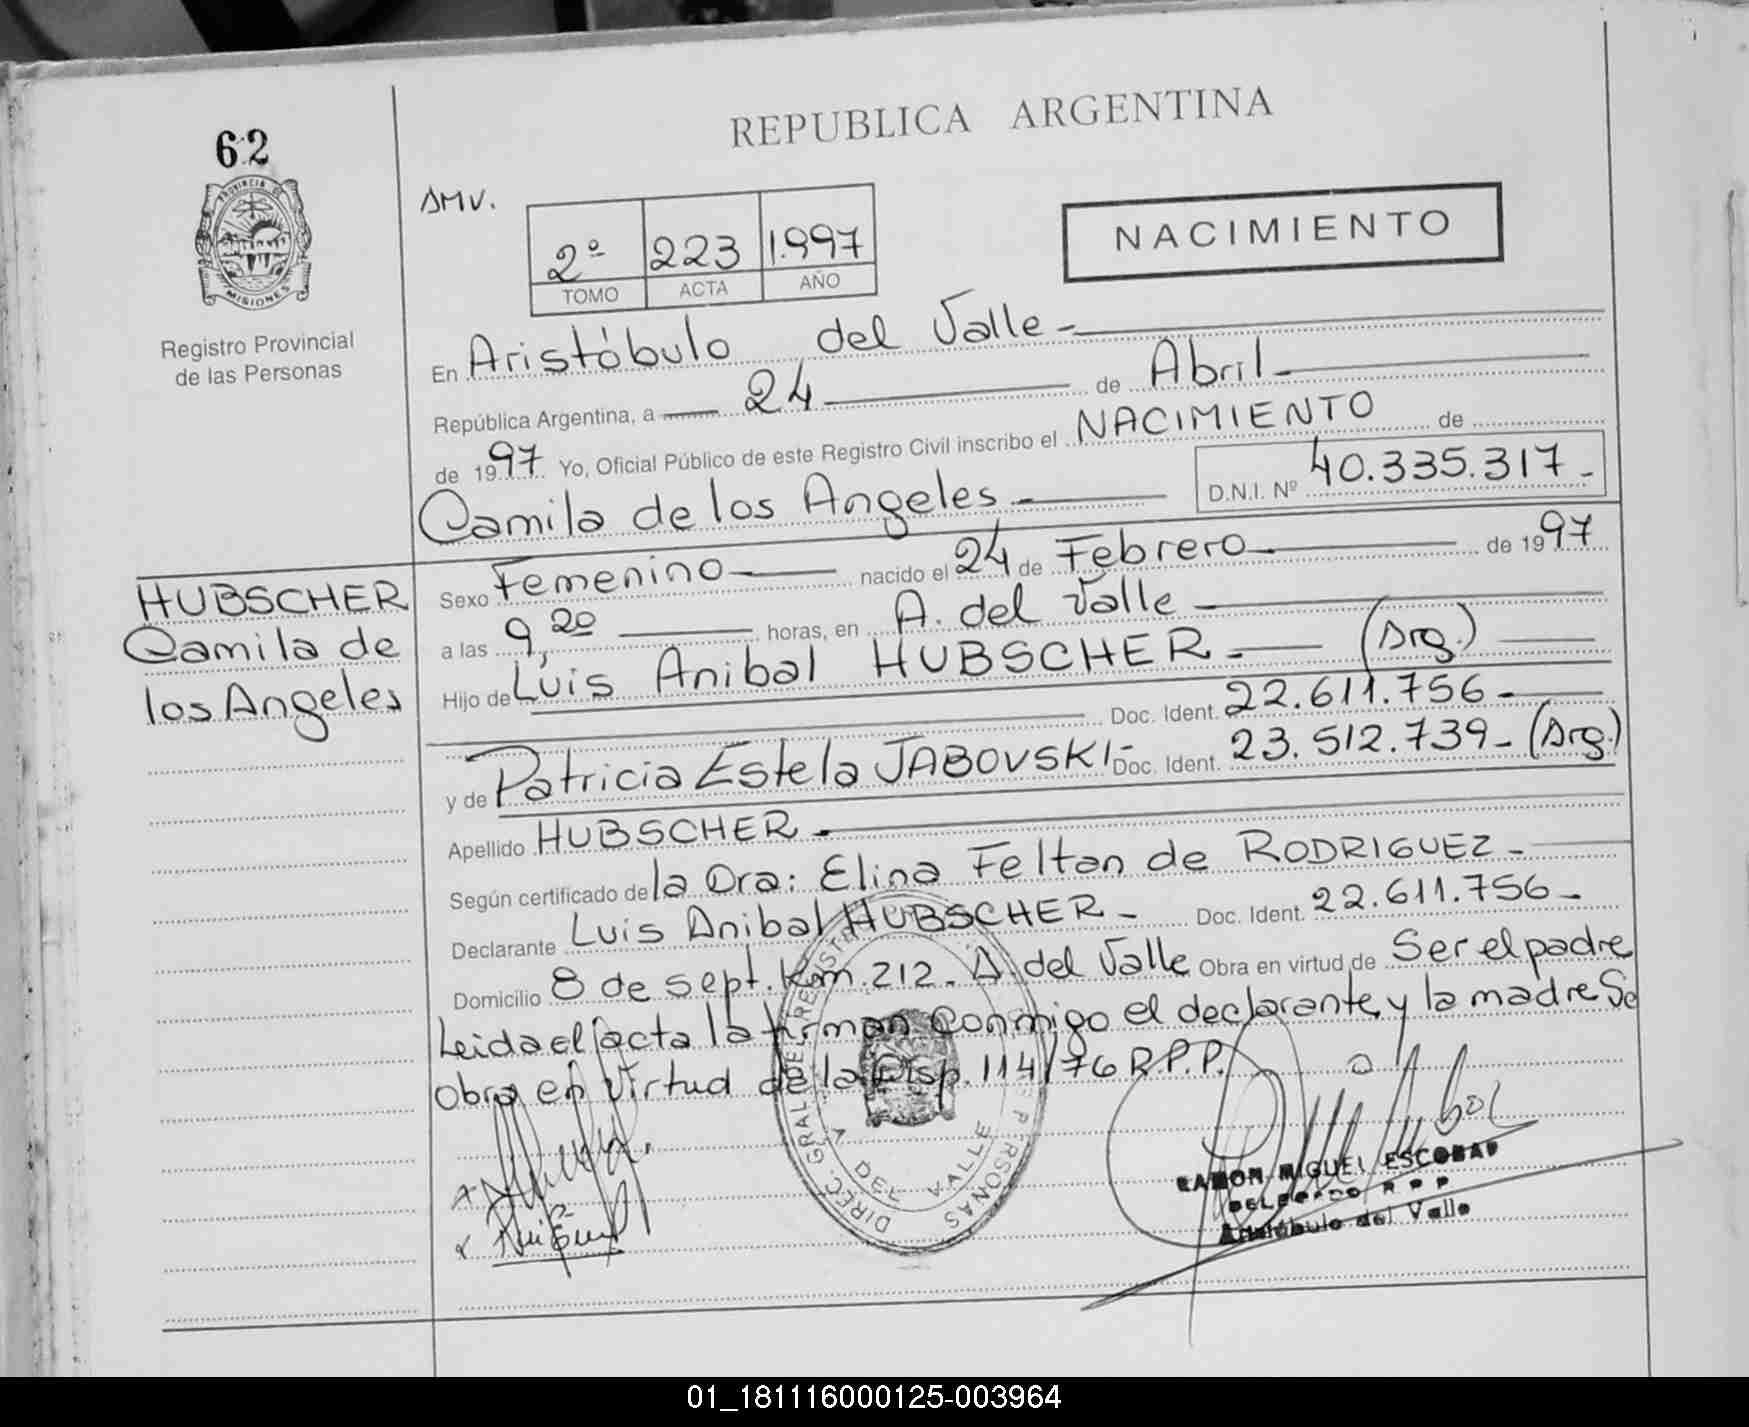 62
PROVINCIA DE
MISIONES
Registro Provincial
de las Personas
REPUBLICA ARGENTINA
AMV.
2º 223 1.997
TOMO ACTA AÑO
NACIMIENTO
En Aristóbulo del Valle -
República Argentina, a 24 de Abril -
de 1997 Yo, Oficial Público de este Registro Civil inscribo el NACIMIENTO de
Camila de los Angeles - D.N.I. Nº 40.335.317 -
HUBSCHER
Camila de
los Angeles
Sexo Femenino - nacido el 24 de Febrero - de 1997
a las 9,20 horas, en A. del Valle -
Hijo de Luis Anibal HUBSCHER - (Arg.)
Doc. Ident. 22.611.756 -
y de Patricia Estela JABOVSKI - Doc. Ident. 23.512.739 - (Arg.)
Apellido HUBSCHER -
Según certificado de la Dra: Elina Feltan de RODRIGUEZ -
Declarante Luis Anibal HUBSCHER - Doc. Ident. 22.611.756 -
Domicilio 8 de sept. Km. 212 - A. del Valle Obra en virtud de Ser el padre
Leida el acta la firman conmigo el declarante y la madre Se
obra en virtud de la Disp. 114/76 R.P.P.
DIREC. GRAL. DEL REGISTRO DE PERSONAS
DEL VALLE
RAMON MIGUEL ESCOBAR
DELEGADO R P P
Aristóbulo del Valle
01_181116000125-003964